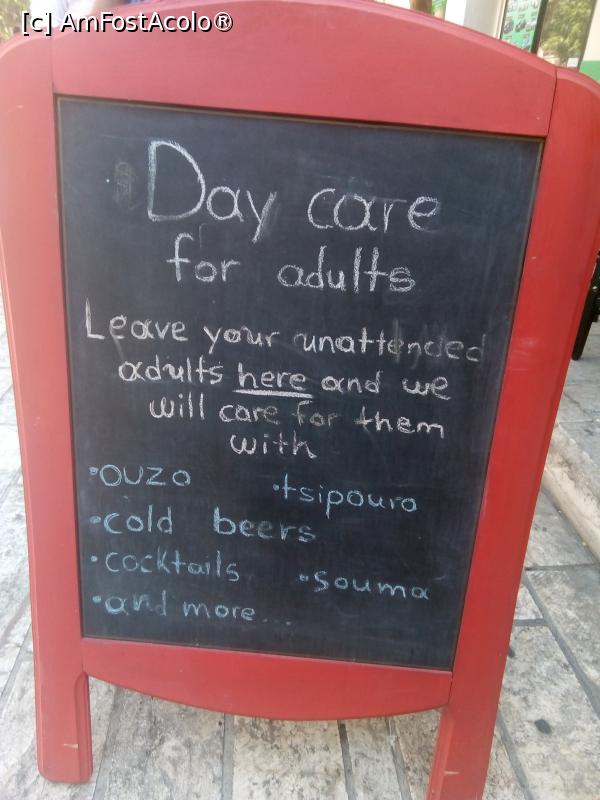 [c] AmFostAcolo®
Day care
for adults
Leave your unattended
adults here and we
will care for them
with
•ouzo
•tsipouro
•cold beers
•cocktails
•souma
•and more...